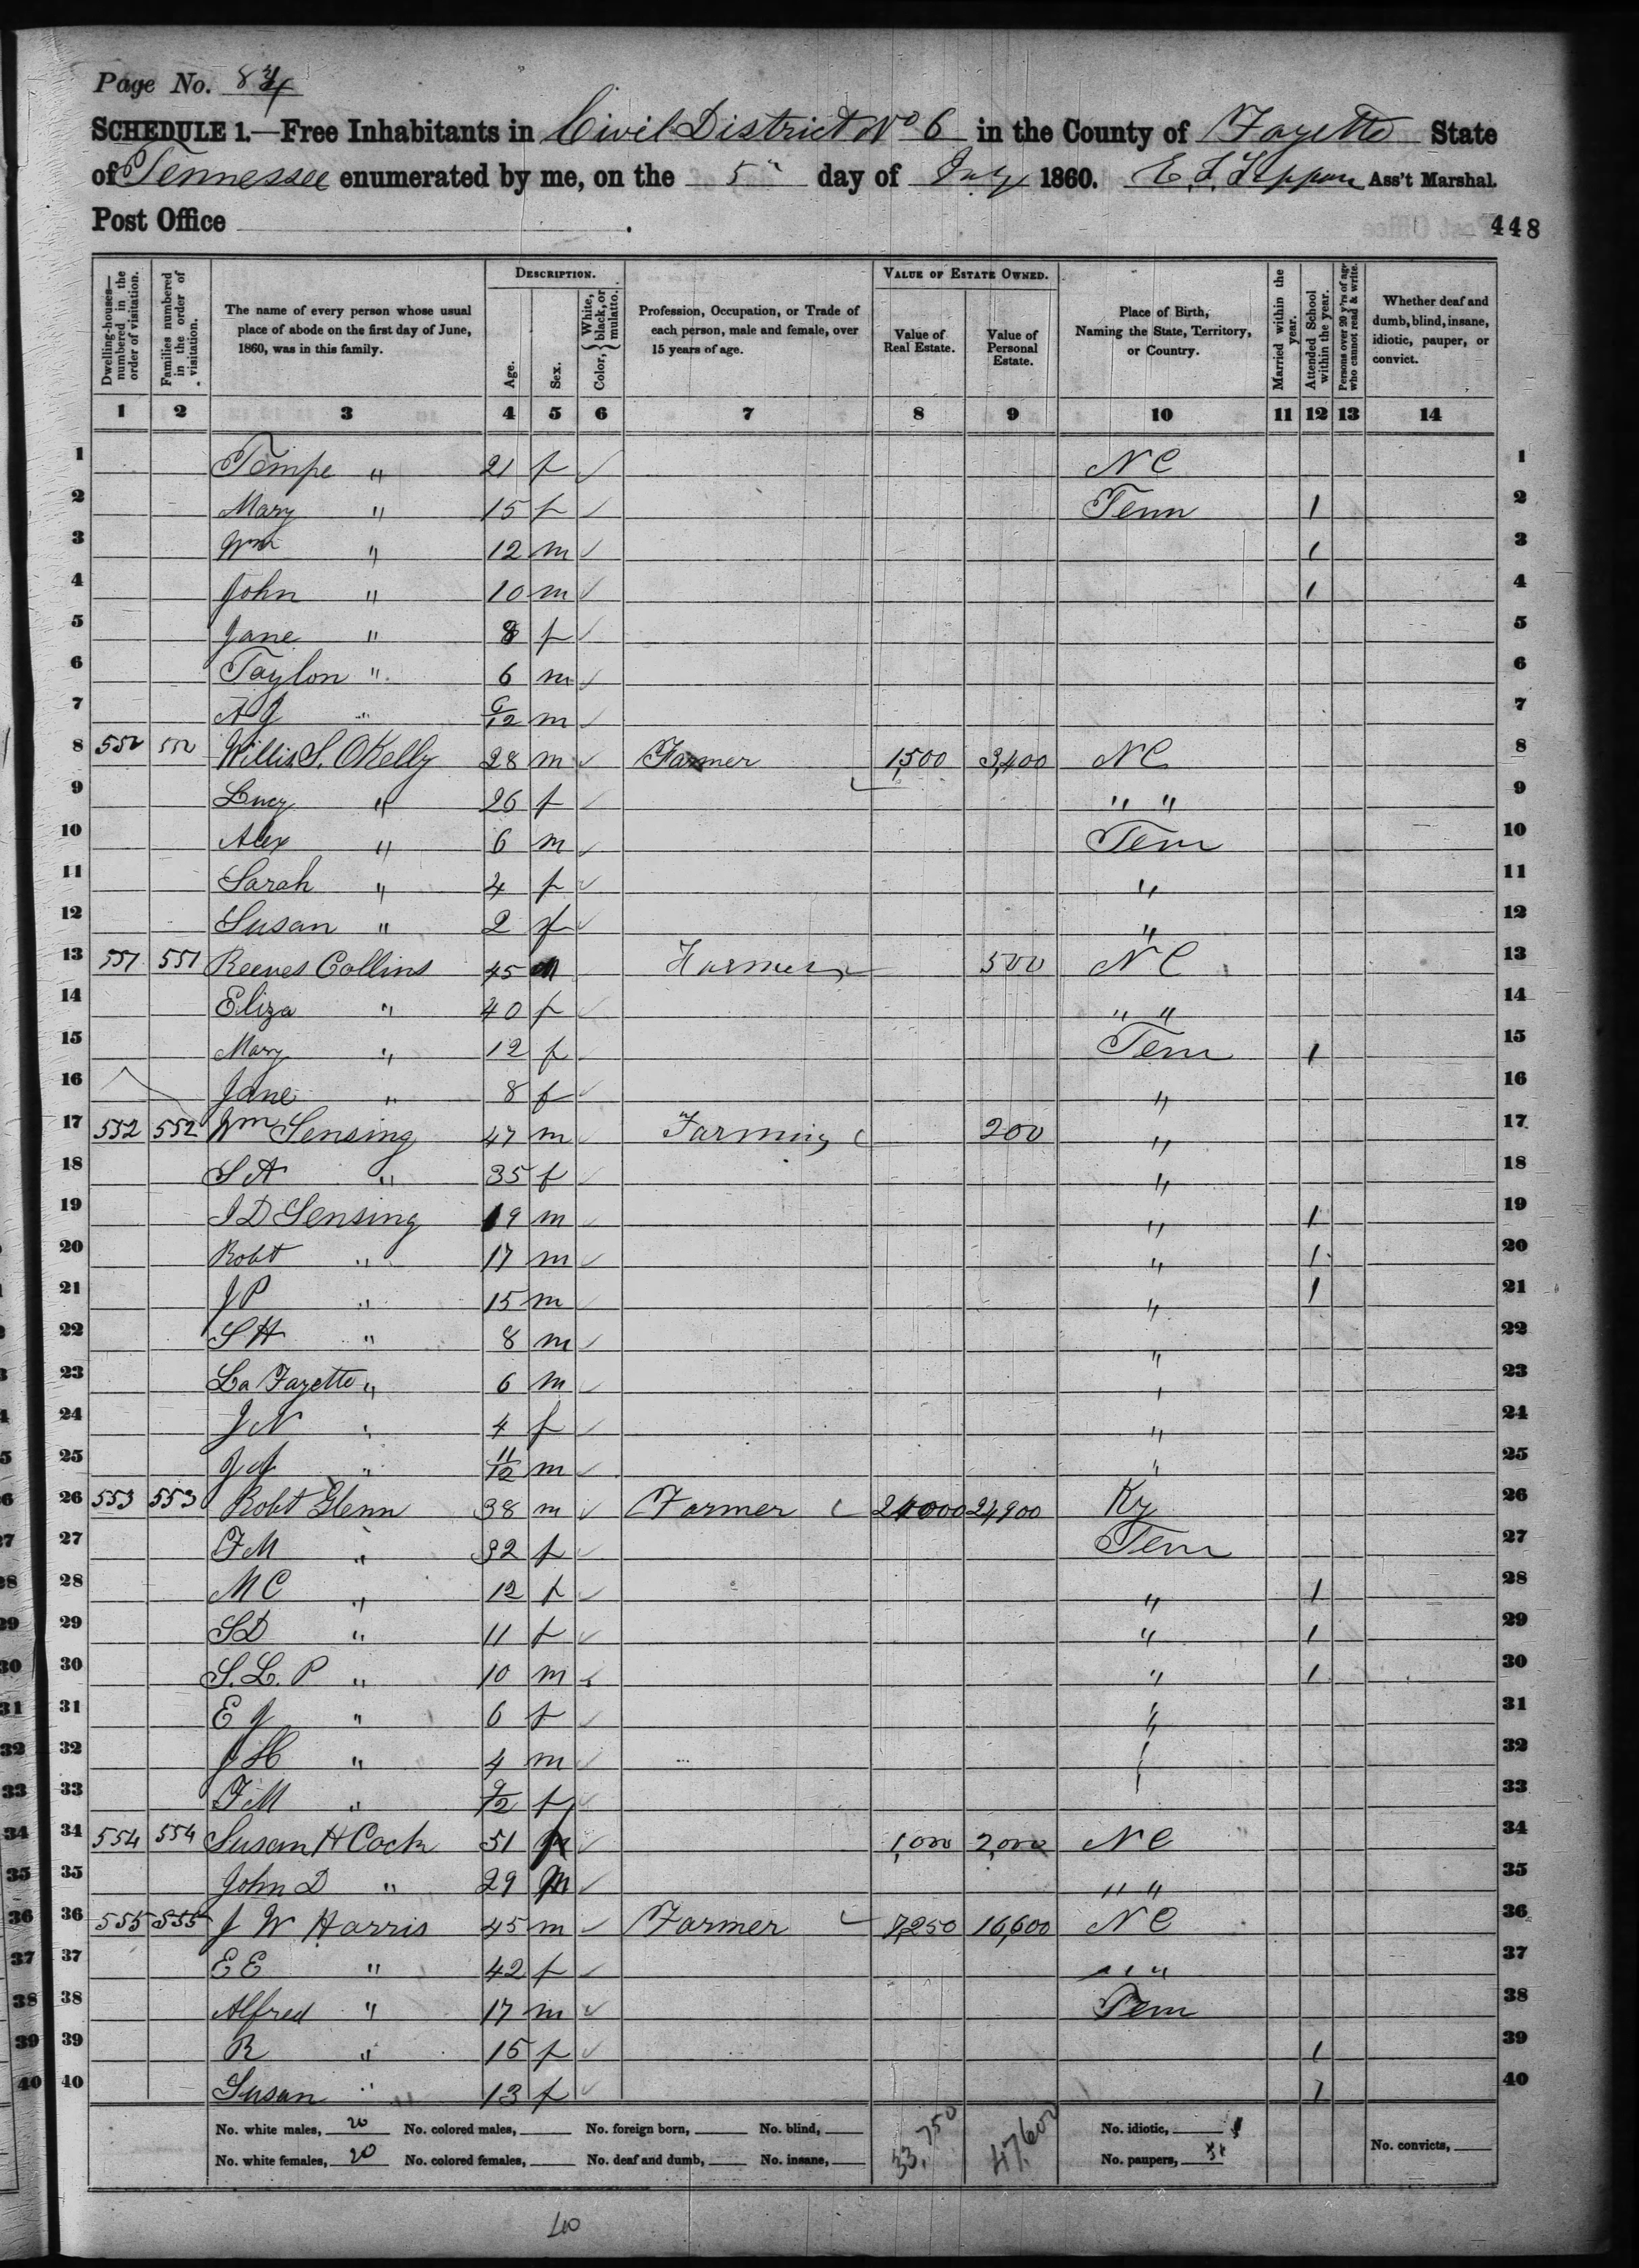 Page No. 84
SCHEDULE 1.—Free Inhabitants in Civil District No 6 in the County of Fayette State
of Tennessee enumerated by me, on the 5" day of July 1860. Ass't Marshal.
Post Office .
448
Dwelling-houses—numbered in the order of visitation.
Families numbered in the order of visitation.
The name of every person whose usual place of abode on the first day of June, 1860, was in this family.
DESCRIPTION.
Age.
Sex.
Color, { White, black, or mulatto.
Profession, Occupation, or Trade of each person, male and female, over 15 years of age.
VALUE OF ESTATE OWNED.
Value of Real Estate.
Value of Personal Estate.
Place of Birth, Naming the State, Territory, or Country.
Married within the year.
Attended School within the year.
Persons over 20 y'rs of age who cannot read & write.
Whether deaf and dumb, blind, insane, idiotic, pauper, or convict.
1 2 3 4 5 6 7 8 9 10 11 12 13 14
1 Tempe " 21 f ✓ N C 1
2 Mary " 15 f ✓ Tenn 1 2
3 Wm " 12 m ✓ 1 3
4 John " 10 m ✓ 1 4
5 Jane " 8 f ✓ 5
6 Taylon " 6 m ✓ 6
7 A J " 6/12 m ✓ 7
8 Willis S. OKelly 28 m ✓ Farmer 1,500 3,400 N C 8
9 Lucy " 26 f ✓ " " 9
10 Alex " 6 m ✓ Tenn 10
11 Sarah " 4 f ✓ " 11
12 Susan " 2 f ✓ " 12
13 551 551 Reeves Collins 45 m Farmer 500 N C 13
14 Eliza " 40 f ✓ " " 14
15 Mary " 12 f ✓ Tenn 1 15
16 Jane " 8 f ✓ " 16
17 552 552 Wm Sensing 47 m Farming 200 " 17
18 S A " 35 f ✓ " 18
19 J D Sensing 19 m " 1 19
20 Robt " 17 m ✓ " 1 20
21 J P " 15 m ✓ " 1 21
22 S H " 8 m ✓ " 22
23 La Fayette " 6 m ✓ " 23
24 J N " 4 f ✓ " 24
25 J A " 11/12 m ✓ " 25
26 553 553 Robt Glenn 38 m ✓ Farmer 24,900 Ky 26
27 F M " 32 f ✓ Tenn 27
28 M C " 12 f ✓ " 1 28
29 S D " 11 f ✓ " 1 29
30 S. L. P " 10 m ✓ " 1 30
31 E J " 6 f ✓ " 31
32 J H " 4 m ✓ " 32
33 F M " 9/12 f ✓ 33
34 554 554 Susan H Cock 51 f ✓ 1,000 2,000 N C 34
35 John D " 29 m ✓ " " 35
36 555 555 J W Harris 45 m ✓ Farmer 7,250 16,600 N C 36
37 E E " 42 f ✓ " " 37
38 Alfred " 17 m ✓ Tenn 38
39 R " 15 f ✓ 1 39
40 Susan " 13 f ✓ 1 40
No. white males, 20 No. colored males, No. foreign born, No. blind, 33,750 47,600 No. idiotic,
No. white females, 20 No. colored females, No. deaf and dumb, No. insane, No. paupers, No. convicts,
40